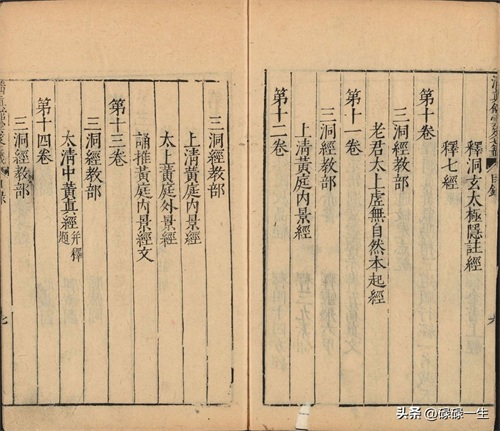 目錄
釋洞玄太極隱註經
釋七經
第十卷
三洞經教部
老君太上虛無自然本起經
第十一卷
三洞經教部
上清黃庭內景經
第十二卷
三洞經教部
上清黃庭內景經
太上黃庭外景經
誦推黃庭內景經文
第十三卷
三洞經教部
太清中黃真經并釋題
第十四卷
三洞經教部
头条 @碌碌一生